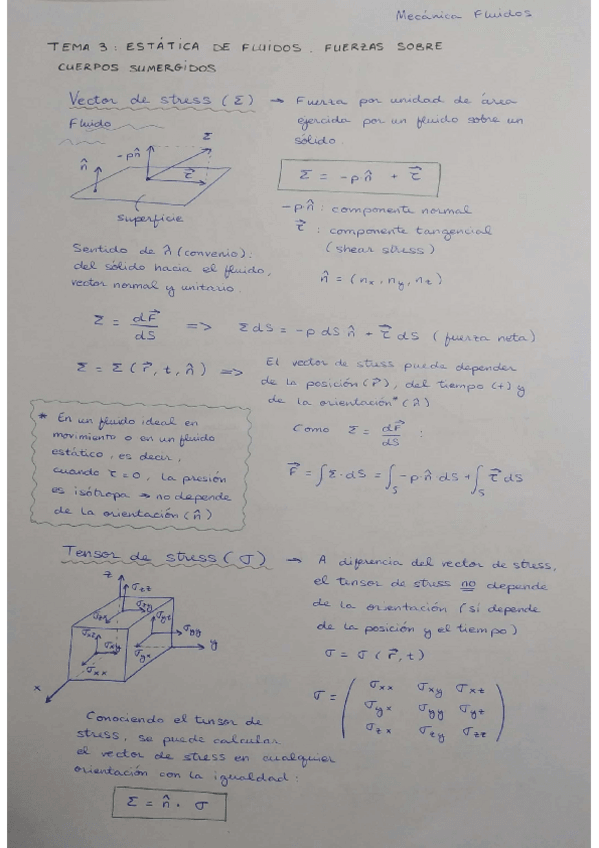 Mecánica Fluidos
TEMA 3: ESTÁTICA DE FLUIDOS. FUERZAS SOBRE
CUERPOS SUMERGIDOS
Vector de stress (Σ) → Fuerza por unidad de área
ejercida por un fluido sobre un
sólido.
Fluido
n̂
-pn̂
Σ
τ⃗
superficie
Σ = -pn̂ + τ⃗
-pn̂: componente normal
τ⃗: componente tangencial
(shear stress)
n̂ = (nx, ny, nz)
Sentido de n̂ (convenio):
del sólido hacia el fluido,
vector normal y unitario.
Σ = dF⃗/dS => Σ dS = -p dS n̂ + τ⃗ dS (fuerza neta)
Σ = Σ (r⃗, t, n̂) => El vector de stress puede depender
de la posición (r⃗), del tiempo (t) y
de la orientación* (n̂)
* En un fluido ideal en
movimiento o en un fluido
estático, es decir,
cuando τ=0, la presión
es isótropa → no depende
de la orientación (n̂)
Como Σ = dF⃗/dS :
F⃗ = ∫ Σ·dS = ∫S -p·n̂ dS + ∫S τ⃗ dS
Tensor de stress (σ) → A diferencia del vector de stress,
el tensor de stress no depende
de la orientación (sí depende
de la posición y el tiempo)
σ = σ (r⃗, t)
z
σzz
σzy
σzx
σxz
σxy
σxx
σyz
σyy
σyx
y
x
σ = ( σxx σxy σxz
σyx σyy σyz
σzx σzy σzz )
Conociendo el tensor de
stress, se puede calcular
el vector de stress en cualquier
orientación con la igualdad:
Σ = n̂ · σ